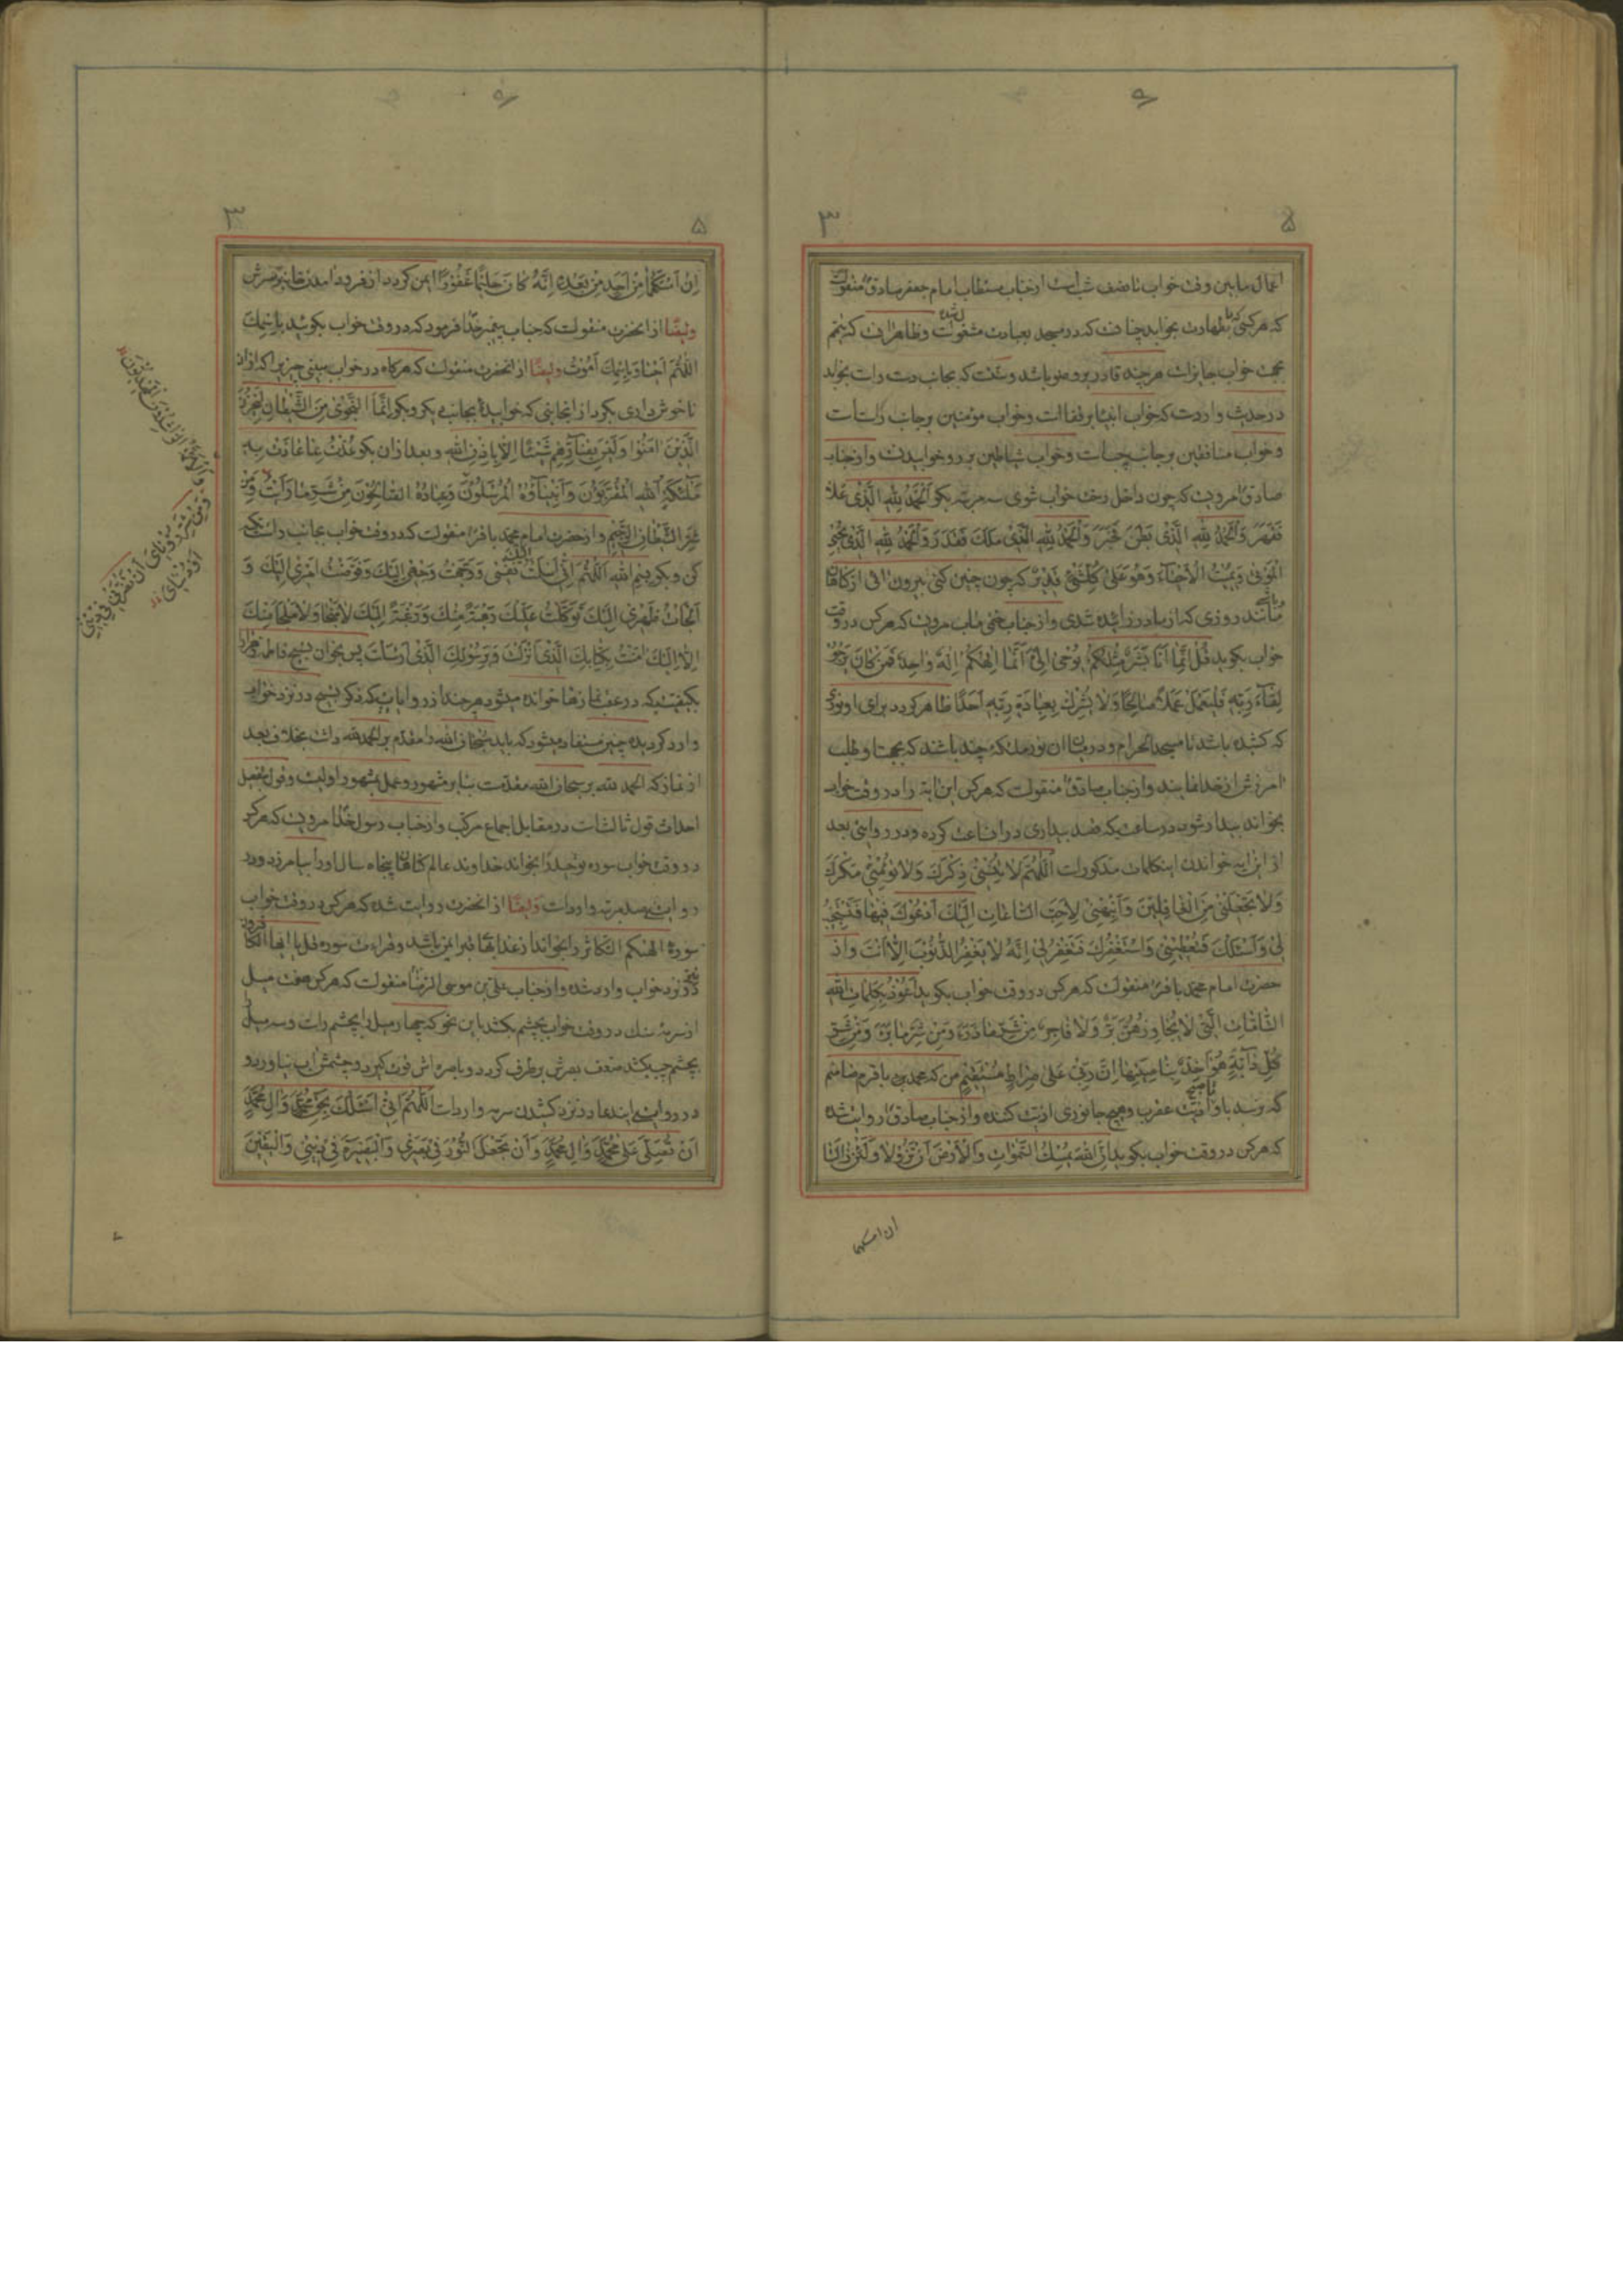 اعمال مابین وقت خواب تا نصف شب است از جناب مستطاب امام جعفر صادق منقولست
که هر کس با طهارت بخوابد چنانست که در مسجد بعبادت مشغولست وظاهر آن که تیمم
بجهت خواب جایز است هر چند قادر بر وضو باشد و سنت که بجانب دست راست بخوابد
در حدیث وارد است که خواب انبیا بر قفا است وخواب مؤمنین بر جانب راست است
وخواب منافقین بر جانب چپ است وخواب شیاطین بر رو خوابیدن واز جناب
صادق مرویست که چون داخل رخت خواب شوی سه مرتبه بکو اَلْحَمْدُ لِلّٰهِ الَّذی عَلا
فَقَهَرَ وَالْحَمْدُ لِلّٰهِ الَّذی بَطَنَ فَخَبَرَ وَالْحَمْدُ لِلّٰهِ الَّذی مَلَكَ فَقَدَرَ وَالْحَمْدُ لِلّٰهِ الَّذی یُحْیِی
الْمَوْتٰی وَیُمیتُ الْاَحْیاءَ وَهُوَ عَلٰی کُلِّ شَیْءٍ قَدیرٌ که چون چنین کنی بیرون آئی از کناهان
مانند روزی که از مادر زائیده شدی واز جناب ختمی مآب مرویست که هر کس در وقت
خواب بکوید قُلْ اِنَّما اَنَا بَشَرٌ مِثْلُکُمْ یُوحٰی اِلَیَّ اَنَّما اِلٰهُکُمْ اِلٰهٌ واحِدٌ فَمَنْ کانَ یَرْجُو
لِقاءَ رَبِّهِ فَلْیَعْمَلْ عَمَلًا صالِحًا وَلا یُشْرِكْ بِعِبادَةِ رَبِّهِ اَحَدًا ظاهر کردد برای او نوری
که کشیده باشد تا مسجد الحرام ودر میان آن نور ملئکه چند باشند که بجهت او طلب
آمرزش از خدا نمایند واز جناب صادق منقولست که هر کس این آیه را در وقت خواب
بخواند بیدار شود در ساعتیکه قصد بیداری در آن ساعت کرده ودر روایتی بعد
از این آیه خواندن اینکلمات مذکور است اَللّٰهُمَّ لا تُنْسِنی ذِکْرَكَ وَلا تُؤْمِنّی مَکْرَكَ
وَلا تَجْعَلْنی مِنَ الْغافِلینَ وَاَنْبِهْنی لِاَحَبِّ السّاعاتِ اِلَیْكَ اَدْعُوكَ فیها فَتَسْتَجیبَ
لی وَاَسْئَلُكَ فَتُعْطِیَنی وَاَسْتَغْفِرُكَ فَتَغْفِرُ لی اِنَّهُ لا یَغْفِرُ الذُّنُوبَ اِلّا اَنْتَ واز
حضرت امام محمد باقر منقولست که هر کس در وقت خواب بکوید اَعُوذُ بِکَلِماتِ اللّٰهِ
التّامّاتِ الَّتی لا یُجاوِزُهُنَّ بَرٌّ وَلا فاجِرٌ مِنْ شَرِّ ما ذَرَءَ وَمِنْ شَرِّ ما بَرَءَ وَمِنْ شَرِّ
کُلِّ دابَّةٍ هُوَ اٰخِذٌ بِناصِیَتِها اِنَّ رَبّی عَلٰی صِراطٍ مُسْتَقیمٍ من که محمد باقرم ضامنم
که نرسد باو اذیت عقرب وهیچ جانوری اذیت کننده واز جناب صادق روایت شده
که هر کس در وقت خواب بکوید اِنَّ اللّٰهَ یُمْسِكُ السَّمٰواتِ وَالْاَرْضَ اَنْ تَزُولا وَلَئِنْ زالَتا
ان امسکهما
اِنْ اَمْسَکَهُما مِنْ اَحَدٍ مِنْ بَعْدِهِ اِنَّهُ کانَ حَلیمًا غَفُورًا ایمن کردد از فرود آمدن خانه بر سرش
وایضًا از آنحضرت منقولست که جناب پیغمبر خدا فرمود که در وقت خواب بکوئید بِاسْمِكَ
اللّٰهُمَّ اَحْیا وَبِاسْمِكَ اَمُوتُ وایضًا از آنحضرت منقولست که هر کاه در خواب ببینی چیزیرا که از آن
ناخوش داری بکرد از آنجانبی که خوابیدهٔ بجانب دیکر وبکو اِنَّمَا النَّجْوٰی مِنَ الشَّیْطانِ لِیَحْزُنَ
الَّذینَ اٰمَنُوا وَلَیْسَ بِضارِّهِمْ شَیْئًا اِلّا بِاِذْنِ اللّٰهِ وبعد از آن بکو عُذْتُ بِما عاذَتْ بِهِ
مَلٰئِکَةُ اللّٰهِ الْمُقَرَّبُونَ وَاَنْبِیاؤُهُ الْمُرْسَلُونَ وَعِبادُهُ الصّالِحُونَ مِنْ شَرِّ ما رَاَیْتُ وَمِنْ
شَرِّ الشَّیْطانِ الرَّجیمِ واز حضرت امام محمد باقر منقولست که در وقت خواب بجانب راست تکیه
کن وبکو بِسْمِ اللّٰهِ اَللّٰهُمَّ اِنّی اَسْلَمْتُ نَفْسی اِلَیْكَ وَوَجَّهْتُ وَجْهی اِلَیْكَ وَفَوَّضْتُ اَمْری اِلَیْكَ وَ
اَلْجَاْتُ ظَهْری اِلَیْكَ تَوَکَّلْتُ عَلَیْكَ رَهْبَةً مِنْكَ وَرَغْبَةً اِلَیْكَ لا مَنْجا وَلا مَلْجَاَ مِنْكَ
اِلّا اِلَیْكَ اٰمَنْتُ بِکِتابِكَ الَّذی اَنْزَلْتَ وَبِرَسُولِكَ الَّذی اَرْسَلْتَ پس بخوان تسبیح فاطمه زهرا را
بکیفیتیکه در عقب نمازها خوانده میشود هر چند از روایاتیکه ذکر تسبیح در نزد خواب
وارد کردیده چنین مستفاد میشود که باید سبحان الله را مقدم بر الحمد لله داشت بخلاف بعد
از نماز که الحمد لله بر سبحان الله مقدمست بنابر مشهور وعمل بمشهور اولیست وقول بفصل
احداث قول ثالثست در مقابل اجماع مرکب واز جناب رسول خدا مرویست که هر کس
در وقت خواب سوره توحید را بخواند خداوند عالم کناهان پنجاه سال او را بیامرزد ودر
روایتی صد مرتبه وارد است وایضًا از آنحضرت روایت شده که هر کس در وقت خواب
سوره الهٰکم التکاثر را بخواند از عذاب قبر ایمن باشد وقراءت سوره قل یا ایها الکافرون
در نزد خواب وارد شده واز جناب علی بن موسی الرضا منقولست که هر کس هفت میل
از سرمه سنك در وقت خواب بچشم بکشد باین نحو که چهار میل را بچشم راست وسه میل
بچشم چپ بکشد ضعف بصرش برطرف کردد وباصره اش قوت کیرد وچشمش آب نیاورد و
در روایتی ایندعا در نزد کشیدن سرمه وارد است اَللّٰهُمَّ اِنّی اَسْئَلُكَ بِحَقِّ مُحَمَّدٍ وَاٰلِ مُحَمَّدٍ
اَنْ تُصَلِّیَ عَلٰی مُحَمَّدٍ وَاٰلِ مُحَمَّدٍ وَاَنْ تَجْعَلَ النُّورَ فی بَصَری وَالْبَصیرَةَ فی دینی وَالْیَقینَ